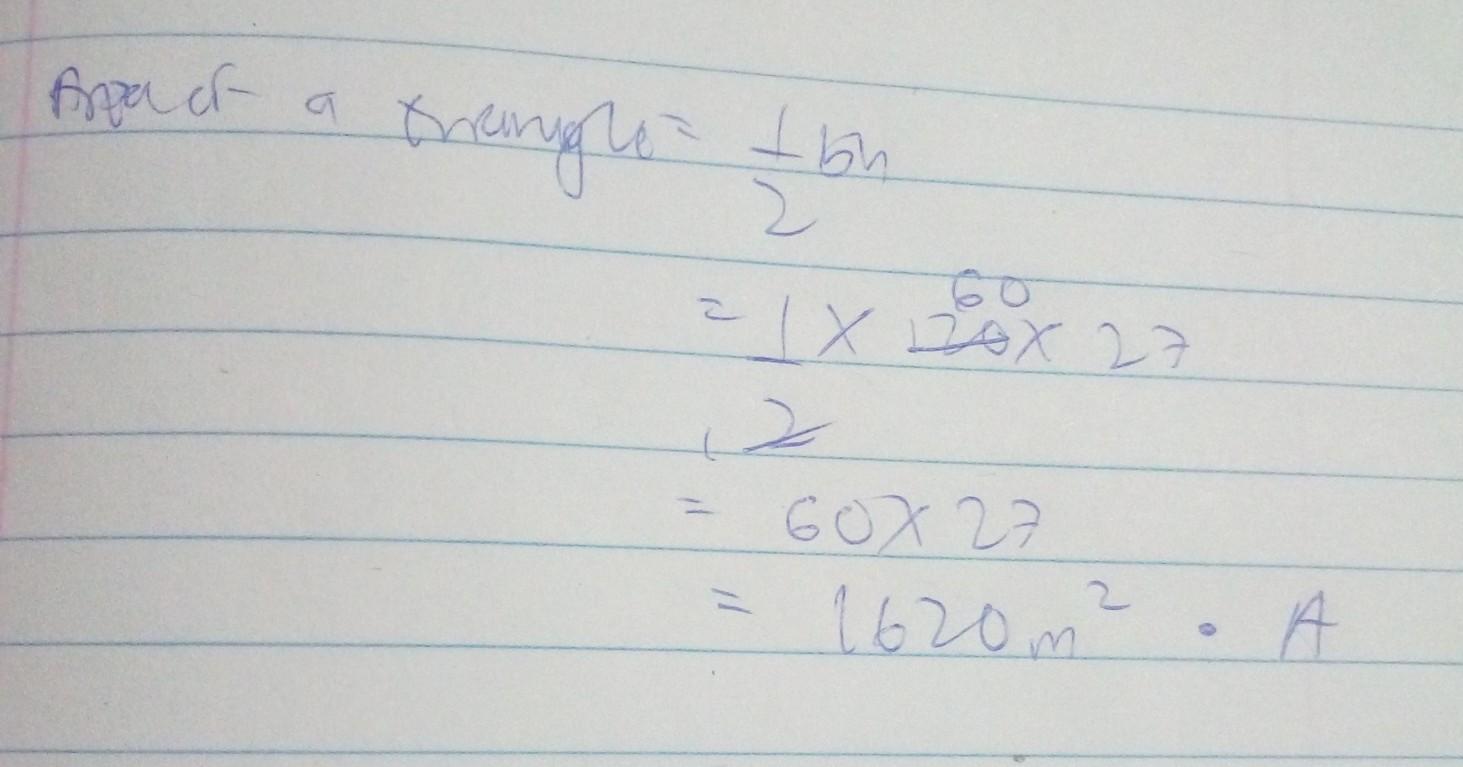 Area of a triangle = 1/2 bh
= 1/2 x 120 x 27
60
1
= 60 x 27
= 1620 m² . A